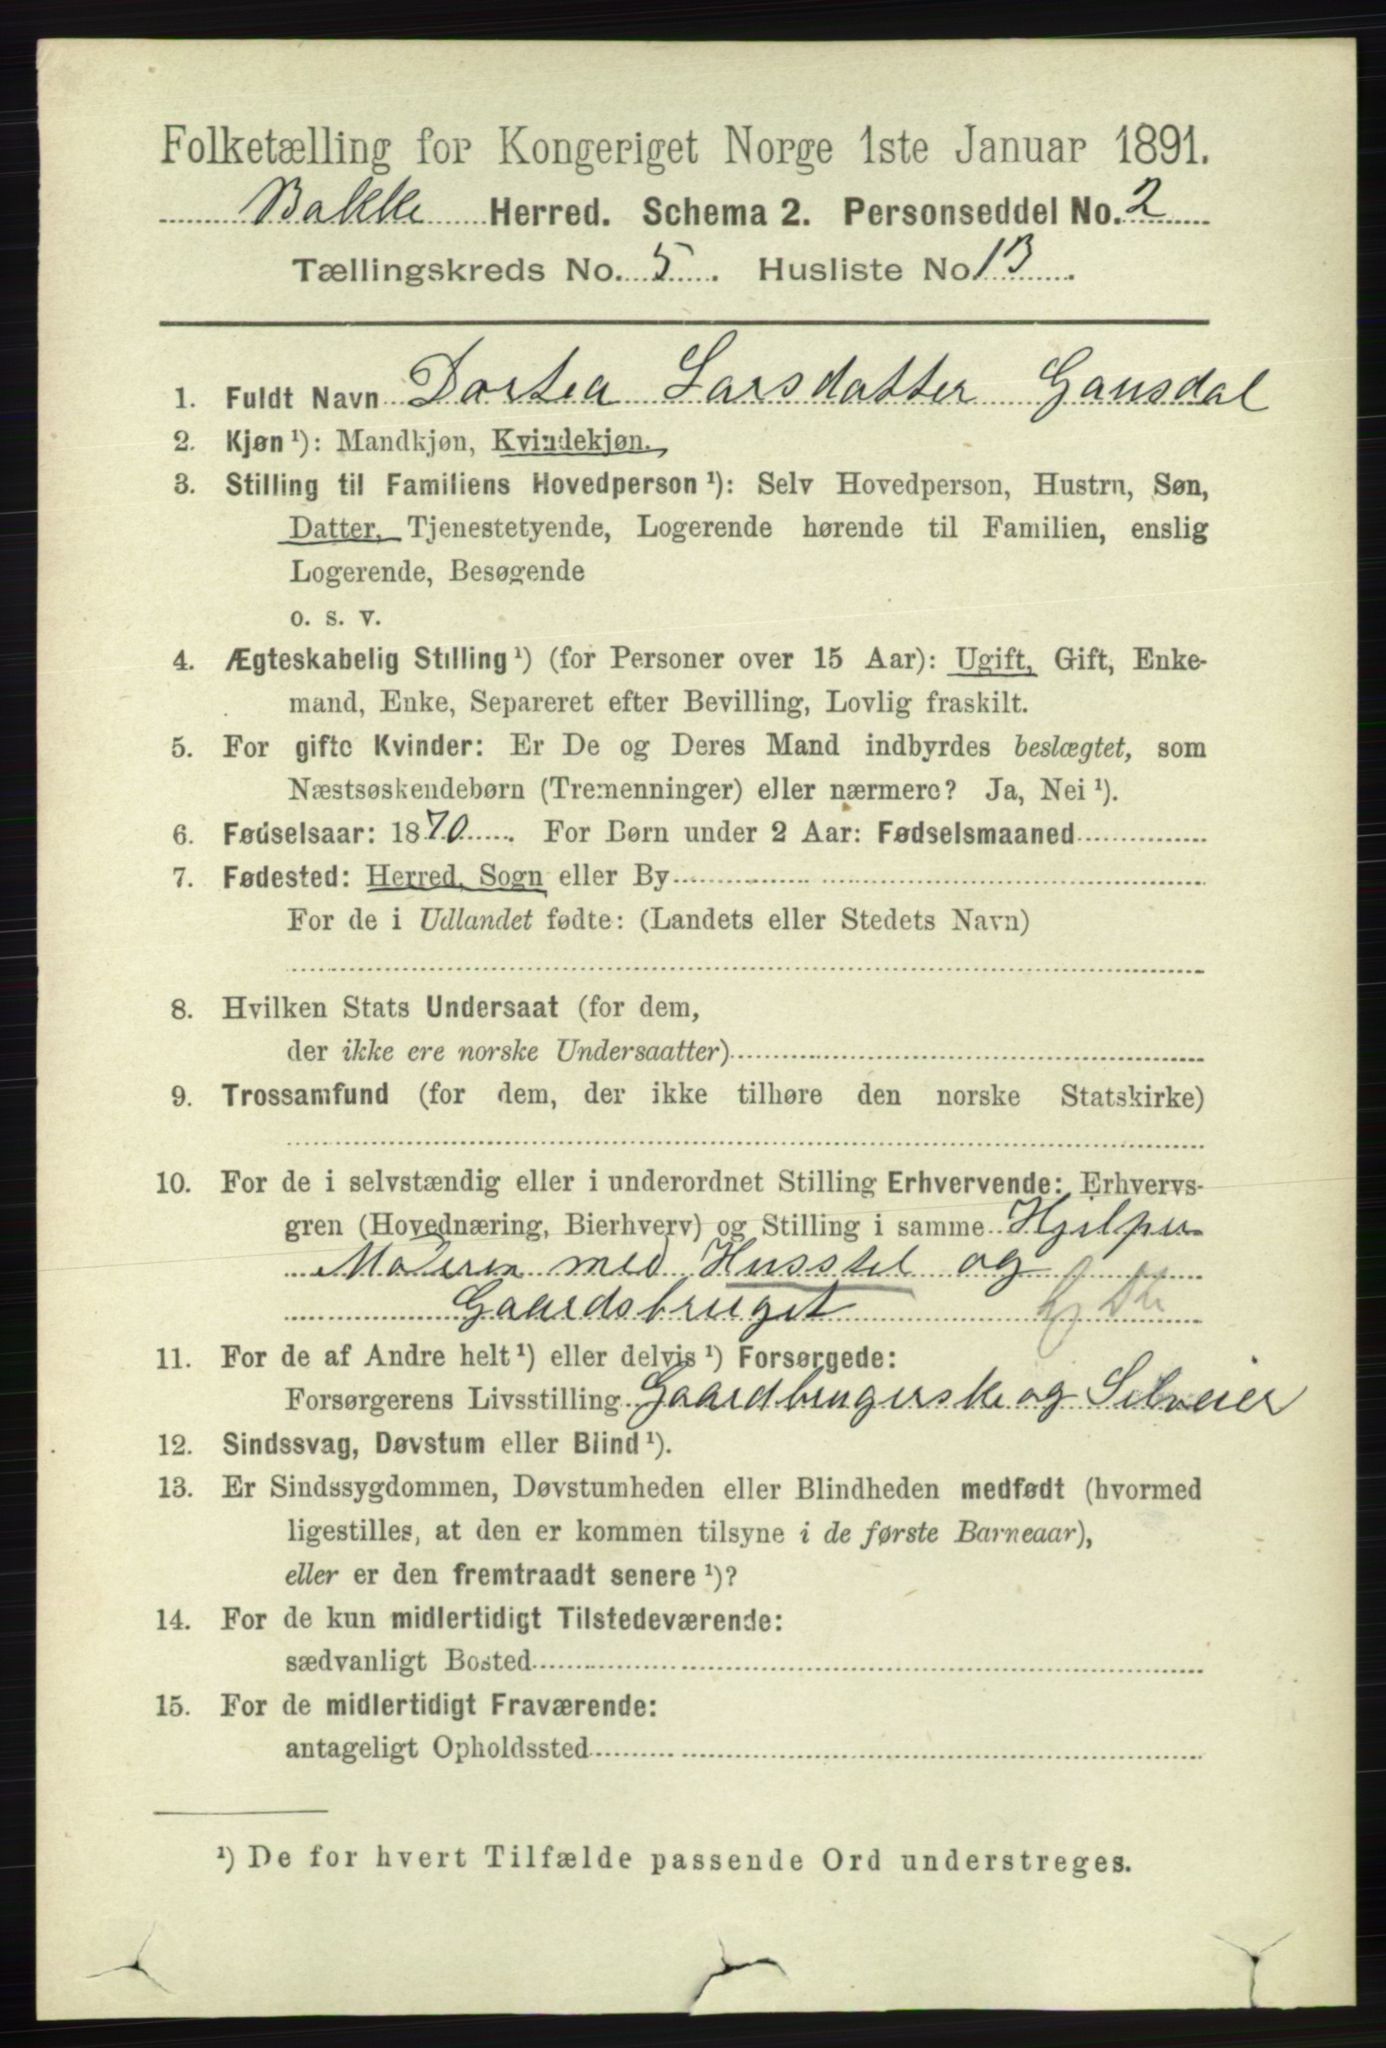 Folketælling for Kongeriget Norge 1ste Januar 1891.
Bakke Herred. Schema 2. Personseddel No. 2
Tællingskreds No. 5. Husliste No 13.
1. Fuldt Navn Dortea Larsdatter Gausdal
2. Kjøn ¹): Mandkjøn, Kvindekjøn.
3. Stilling til Familiens Hovedperson ¹): Selv Hovedperson, Hustru, Søn,
Datter, Tjenestetyende, Logerende hørende til Familien, enslig
Logerende, Besøgende
o. s. v.
4. Ægteskabelig Stilling ¹) (for Personer over 15 Aar): Ugift, Gift, Enke-
mand, Enke, Separeret efter Bevilling, Lovlig fraskilt.
5. For gifte Kvinder: Er De og Deres Mand indbyrdes beslægtet, som
Næstsøskendebørn (Tremenninger) eller nærmere? Ja, Nei ¹).
6. Fødselsaar: 1870. For Børn under 2 Aar: Fødselsmaaned
7. Fødested: Herred, Sogn eller By
For de i Udlandet fødte: (Landets eller Stedets Navn)
8. Hvilken Stats Undersaat (for dem,
der ikke ere norske Undersaatter)
9. Trossamfund (for dem, der ikke tilhøre den norske Statskirke)
10. For de i selvstændig eller i underordnet Stilling Erhvervende: Erhvervs-
gren (Hovednæring, Bierhverv) og Stilling i samme Hjelper
Moderen med Husstel og
Gaardsbruget
11. For de af Andre helt ¹) eller delvis ¹) Forsørgede:
Forsørgerens Livsstilling Gaardbrugerske og Selveier
12. Sindssvag, Døvstum eller Blind ¹).
13. Er Sindssygdommen, Døvstumheden eller Blindheden medfødt (hvormed
ligestilles, at den er kommen tilsyne i de første Barneaar),
eller er den fremtraadt senere ¹)?
14. For de kun midlertidigt Tilstedeværende:
sædvanligt Bosted
15. For de midlertidigt Fraværende:
antageligt Opholdssted
¹) De for hvert Tilfælde passende Ord understreges.